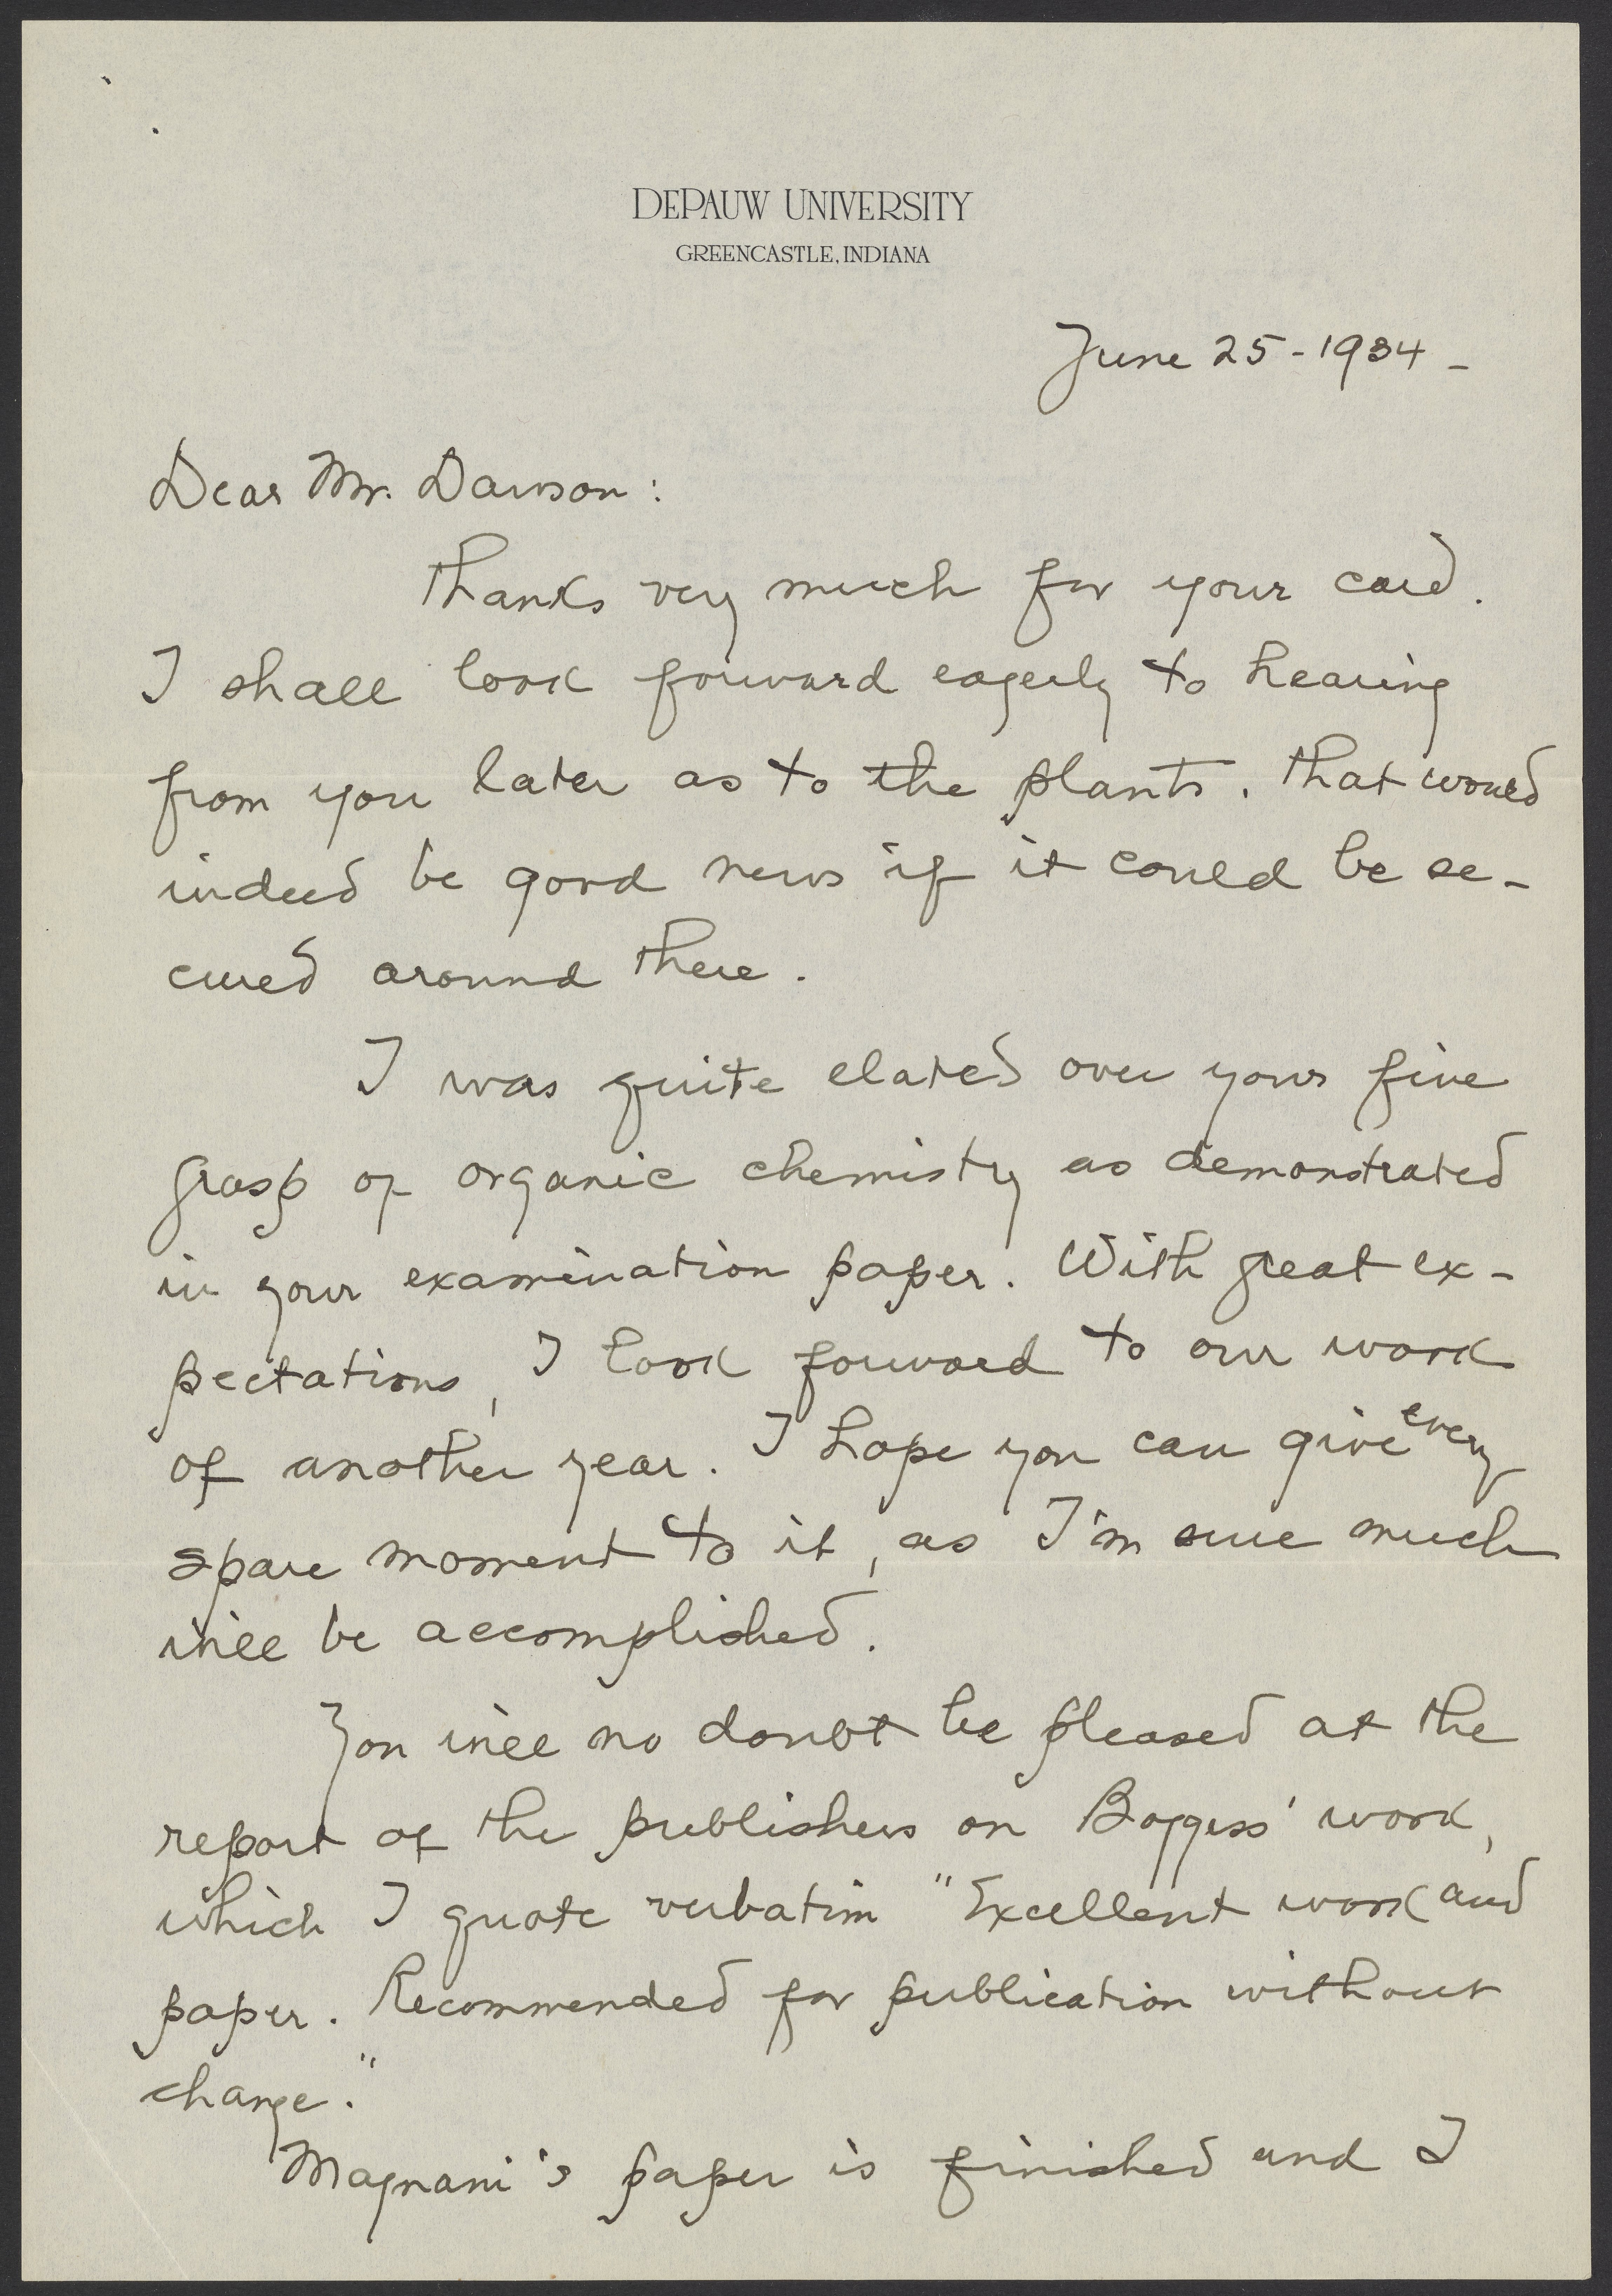 DEPAUW UNIVERSITY
GREENCASTLE, INDIANA
June 25 - 1934 -
Dear Mr. Dawson :
Thanks very much for your card.
I shall look forward eagerly to hearing
from you later as to the plants. That would
indeed be good news if it could be se-
cured around there.
I was quite elated over your fine
grasp of organic chemistry as demonstrated
in your examination paper. With great ex-
pectations, I look forward to our work
of another year. I hope you can give every
spare moment to it, as I'm sure much
will be accomplished.
You will no doubt be pleased at the
report of the publishers on Boggess' work,
which I quote verbatim "Excellent work and
paper. Recommended for publication without
change."
Magnani's paper is finished and I